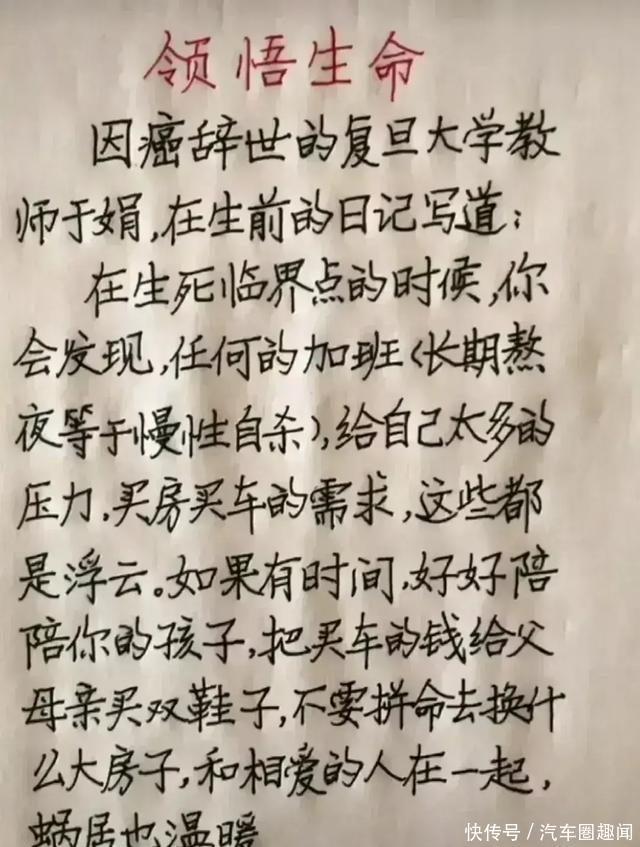 领悟生命
因癌辞世的复旦大学教
师于娟,在生前的日记写道:
在生死临界点的时候,你
会发现,任何的加班(长期熬
夜等于慢性自杀),给自己太多的
压力,买房买车的需求,这些都
是浮云。如果有时间,好好陪
陪你的孩子,把买车的钱给父
母亲买双鞋子,不要拼命去换什
么大房子,和相爱的人在一起,
蜗居也温暖
快传号/汽车圈趣闻